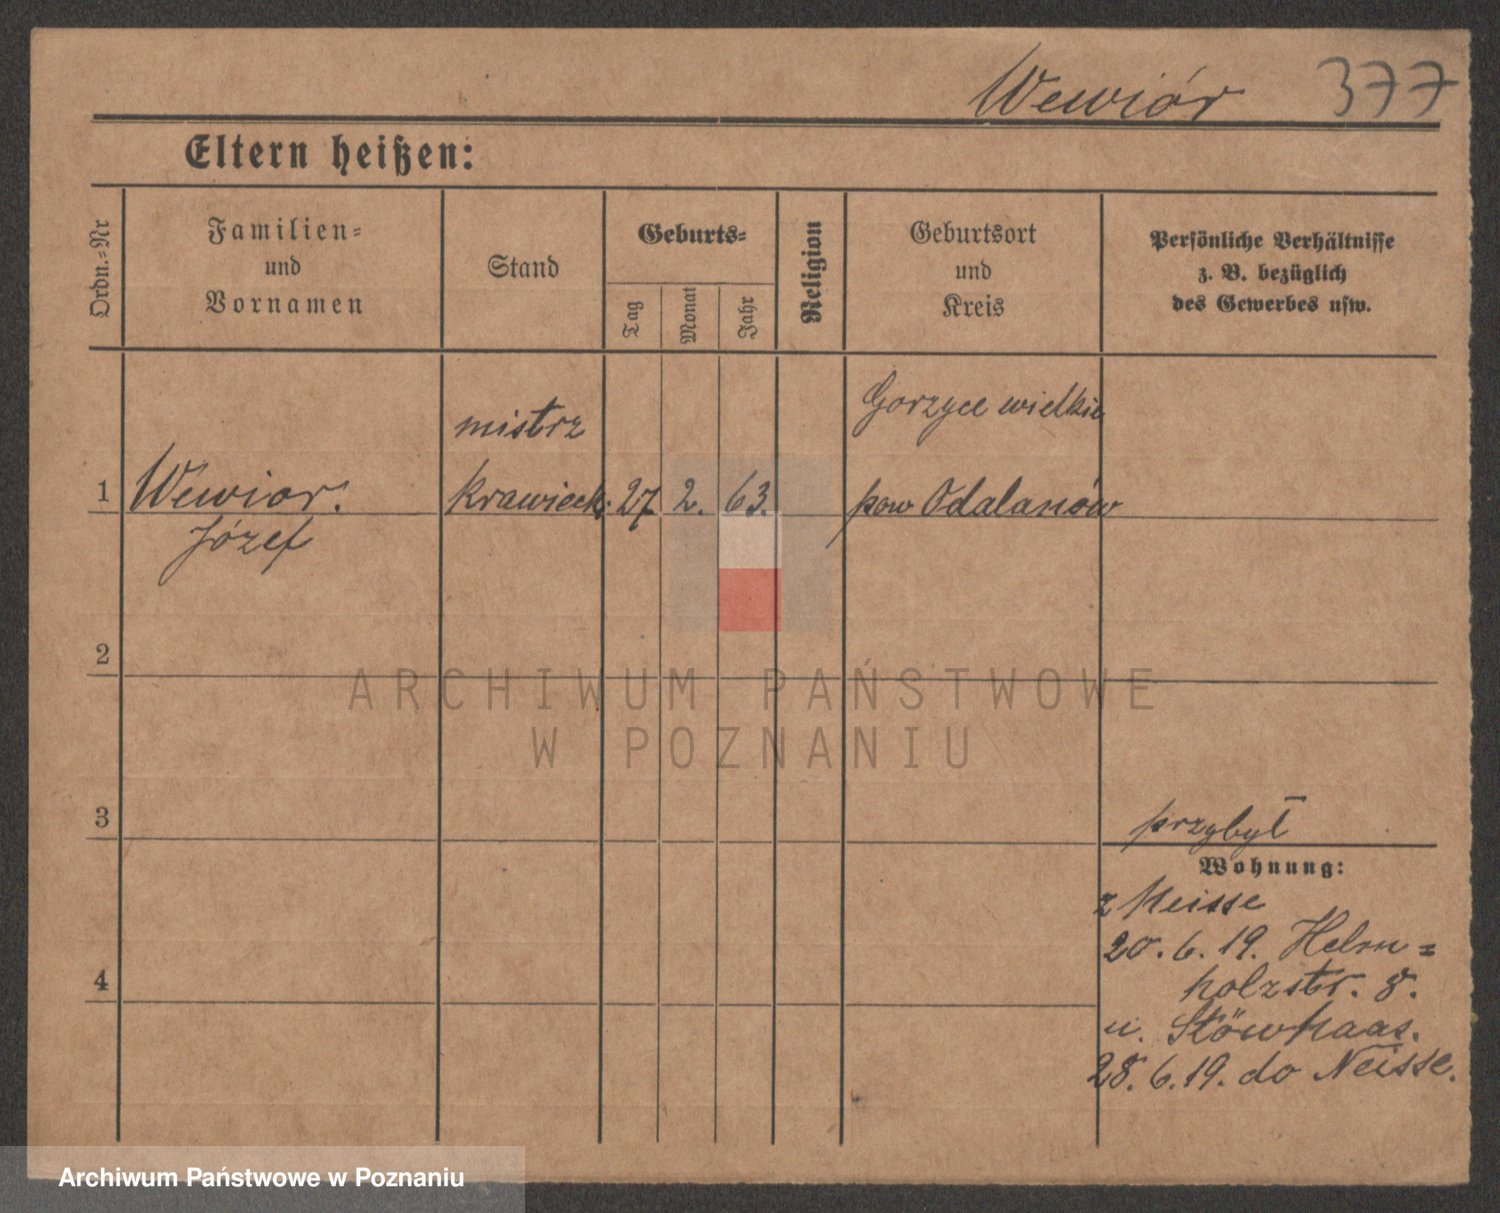 Wewiór 377
Eltern heißen:
Ordn.=Nr
Familien=
und
Vornamen
Stand
Geburts=
Tag
Monat
Jahr
Religion
Geburtsort
und
Kreis
Persönliche Verhältnisse
z. B. bezüglich
des Gewerbes usw.
mistrz
Gorzyce wielkie
1 Wewior. krawieck. 27 2. 63. pow Odalanów
Józef
2
3
przybył
Wohnung:
z Neisse
20. 6. 19. Helm=
holzstr. 8.
u. Stöwhaas.
4
28. 6. 19. do Neisse.
ARCHIWUM PAŃSTWOWE
W POZNANIU
Archiwum Państwowe w Poznaniu